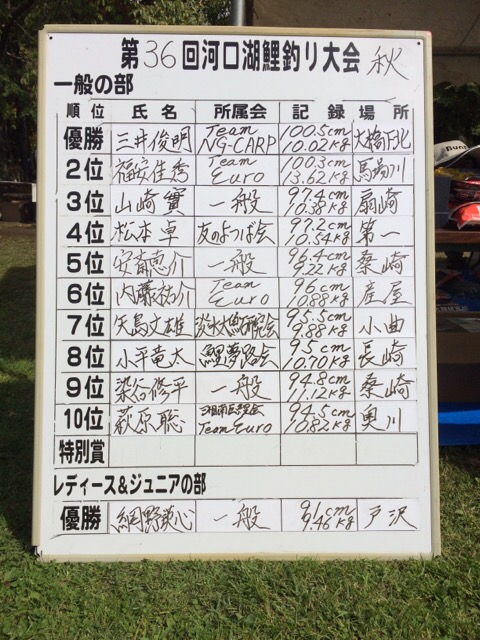 第36回河口湖鯉釣り大会 秋
一般の部
順位 氏名 所属会 記録 場所
優勝 三井俊明 Team NG-CARP 100.5cm 10.02kg 大橋下北
2位 福安佳秀 Team Euro 100.3cm 13.62kg 馬場川
3位 山崎寶 一般 97.4cm 10.38kg 扇崎
4位 松本卓 友のよつば会 97.2cm 10.54kg 第一
5位 安斎恵介 一般 96.4cm 9.22kg 桑崎
6位 内藤祐介 Team Euro 96cm 10.88kg 産屋
7位 矢島文雄 淡水大魚研究会 95.5cm 9.88kg 小曲
8位 小平竜太 鯉夢路会 95cm 10.70kg 長崎
9位 染谷修平 一般 94.8cm 11.12kg 桑崎
10位 萩原聡 Team Euro 94.5cm 10.82kg 奥川
特別賞
レディース&ジュニアの部
優勝 網野 心 一般 91cm 9.46kg 戸沢